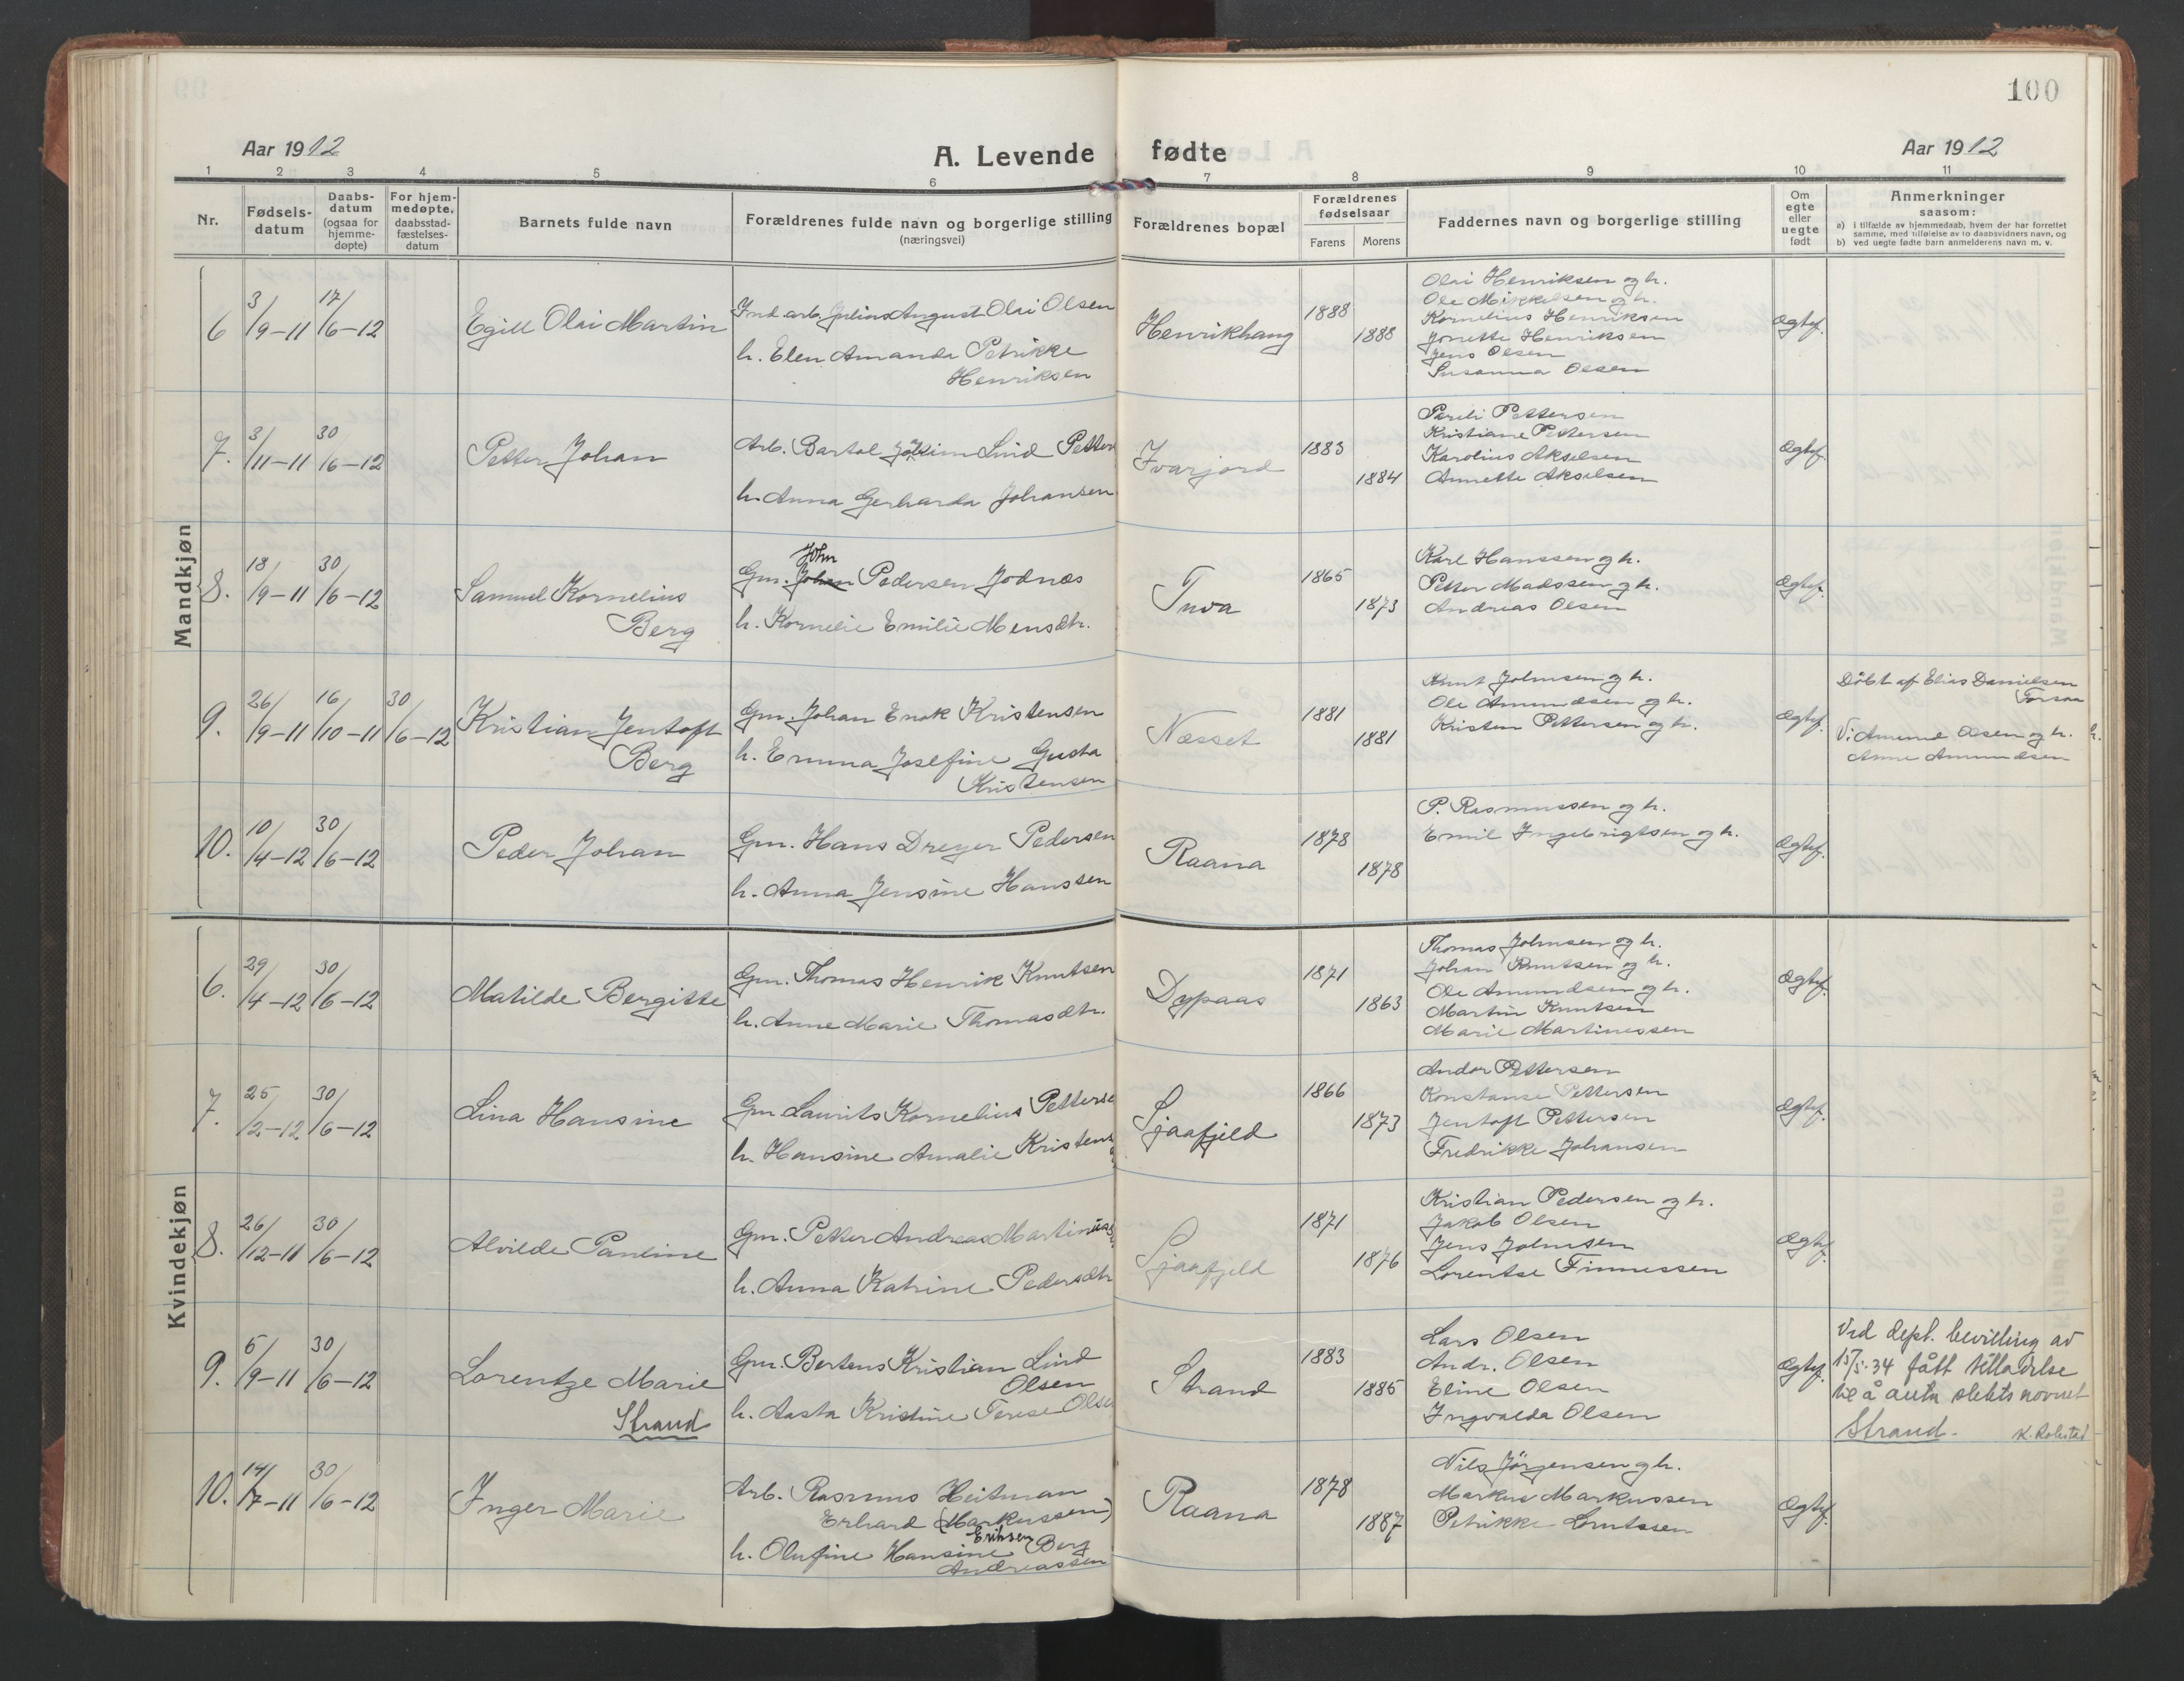 100
Aar 1912
A. Levende fødte
Aar 1912
1 2 3 4 5 6 7 8 9 10 11
Nr.
Fødsels-
datum
Daabs-
datum
(ogsaa for
hjemme-
døpte)
For hjem-
medøpte,
daabsstad-
fæstelses-
datum
Barnets fulde navn
Forældrenes fulde navn og borgerlige stilling
(næringsvei)
Forældrenes bopæl
Forældrenes
fødselsaar
Farens Morens
Faddernes navn og borgerlige stilling
Om
egte
eller
uegte
født
Anmerkninger
saasom:
a) i tilfælde av hjemmedaab, hvem der har forrettet
samme, med tilføielse av to daabsvidners navn, og
b) ved uegte fødte barn anmelderens navn m. v.
Mandkjøn
6 3/9-11 17/6-12
Egill Olai Martin
Ind. arb. Julius August Olai Olsen
h. Elen Amanda Petrikke
Henriksen
Henrikhaug
1888
1888
Olai Henriksen og h.
Ole Mikkelsen og h.
Kornelius Henriksen
Jonette Henriksen
Jens Olsen
Susanna Olsen
Ægtef.
7. 3/11-11 30/6-12
Petter Johan
Arb. Bartol Joakim Lind Petters
h. Anna Gerharda Johansen
Ivarjord
1883
1884
Pareli Pettersen
Kristiane Pettersen
Karolius Akselsen
Annette Akselsen
Ægtef.
8. 18/9-11 30/6-12
Samuel Kornelius
Berg
John
Gm. Johan Pedersen Jodnæs
h. Kornelie Emilie Mensdtr.
Tuva
1865
1873
Karl Hanssen og h.
Petter Madssen og h.
Andreas Olsen
Ægtef.
9. 26/9-11 16/10-11 30/6-12
Kristian Jentoft
Berg
Gm. Johan Enok Kristensen
h. Emma Josefine Gusta
Kristensen
Næsset
1881
1881
Knut Johnsen og h.
Ole Amundsen og h.
Kristen Pettersen og h.
Ægtef.
Döbt af Elias Danielsen
Forsaa
V: Amund Olsen og h.
Anne Amundsen
10. 10/4-12 30/6-12
Peder Johan
Gm. Hans Dreyer Pedersen
h. Anna Jensine Hanssen
Raana
1878
1878
P. Rasmussen og h.
Emil Ingebrigtsen og h.
Ægtef.
Kvindekjøn
6. 29/4-12 30/6-12
Matilde Bergitte
Gm. Thomas Henrik Knutsen
h. Anne Marie Thomasdtr.
Dypaas
1871
1863
Thomas Johnsen og h.
Johan Knutsen og h.
Ole Amundsen og h.
Martin Knutsen
Marie Martinussen
Ægtef.
7. 25/2-12 30/6-12
Lina Hansine
Gm Laurits Kornelius Petterse
h. Hansine Amalie Kristens
Sjaafjeld
1866
1873
Andor Pettersen
Konstanse Pettersen
Jentoft Pettersen
Fredrikke Johansen
Ægtef.
8. 26/12-11 30/6-12
Alvilde Pauline
Gm. Petter Andreas Martinus
h. Anna Katrine Pedersdtr
Sjaafjeld
1871
1876
Kristian Pedersen og h.
Jakob Olsen
Jens Johnsen
Lorentse Finnessen
Ægtef.
9. 5/9-11 30/6-12
Lorentze Marie
Strand
Gm. Bertens Kristian Lind
Olsen
h. Aasta Kristine Terese Olse
Strand
1883
1885
Lars Olsen
Andr. Olsen
Eline Olsen
Ingvalda Olsen
Ægtef.
Ved dept. bevilling av
15/5-34 fått tilladelse
til å anta slektsnavnet
Strand.
10. 14/7-11 30/6-12
Inger Marie
Arb. Rasmus Heitman
Erhard (Markussen)
Eriksen
h. Olufine Hansine Berg
Andreassen
Raana
1878
1887
Nils Jörgensen og h.
Markus Markussen
Petrikke Lorntsen
Ægtef.